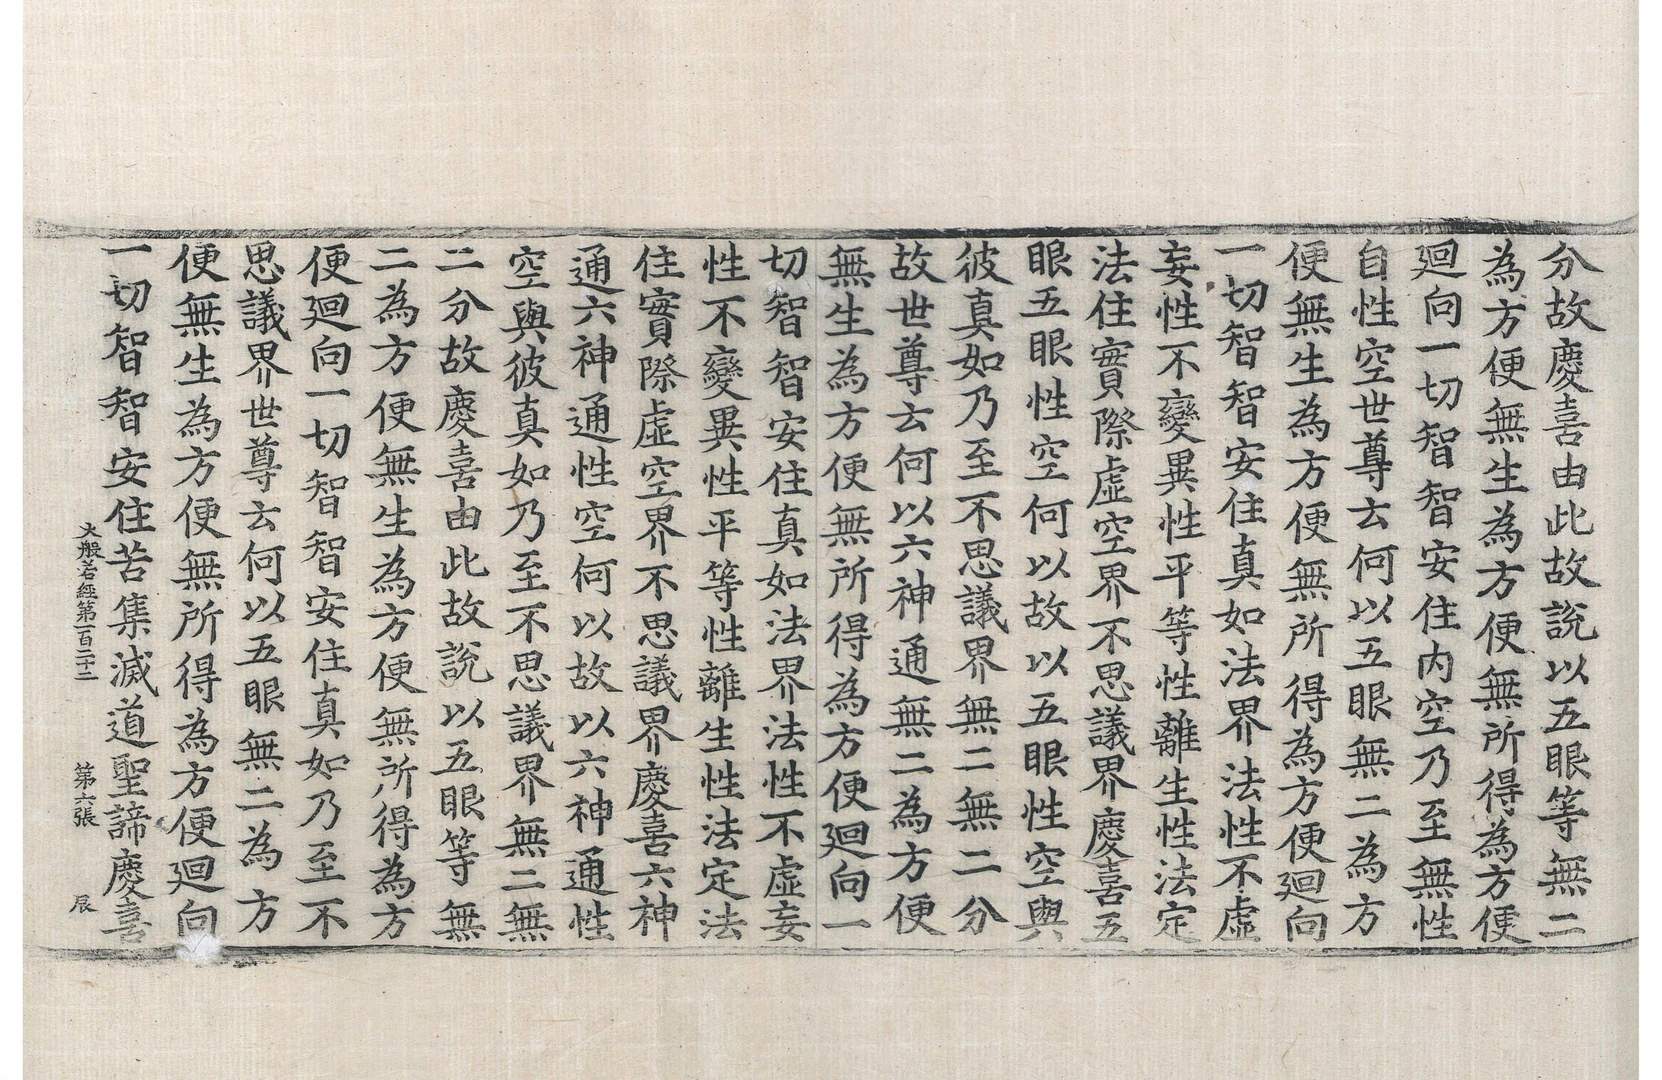 分故慶喜由此故說以五眼等無二
為方便無生為方便無所得為方便
迴向一切智智安住內空乃至無性
自性空世尊云何以五眼無二為方
便無生為方便無所得為方便迴向
一切智智安住真如法界法性不虛
妄性不變異性平等性離生性法定
法住實際虛空界不思議界慶喜五
眼五眼性空何以故以五眼性空與
彼真如乃至不思議界無二無二分
故世尊云何以六神通無二為方便
無生為方便無所得為方便迴向一
切智智安住真如法界法性不虛妄
性不變異性平等性離生性法定法
住實際虛空界不思議界慶喜六神
通六神通性空何以故以六神通性
空與彼真如乃至不思議界無二無
二分故慶喜由此故說以五眼等無
二為方便無生為方便無所得為方
便迴向一切智智安住真如乃至不
思議界世尊云何以五眼無二為方
便無生為方便無所得為方便迴向
一切智智安住苦集滅道聖諦慶喜
大般若經第一百二十三 第六張 辰